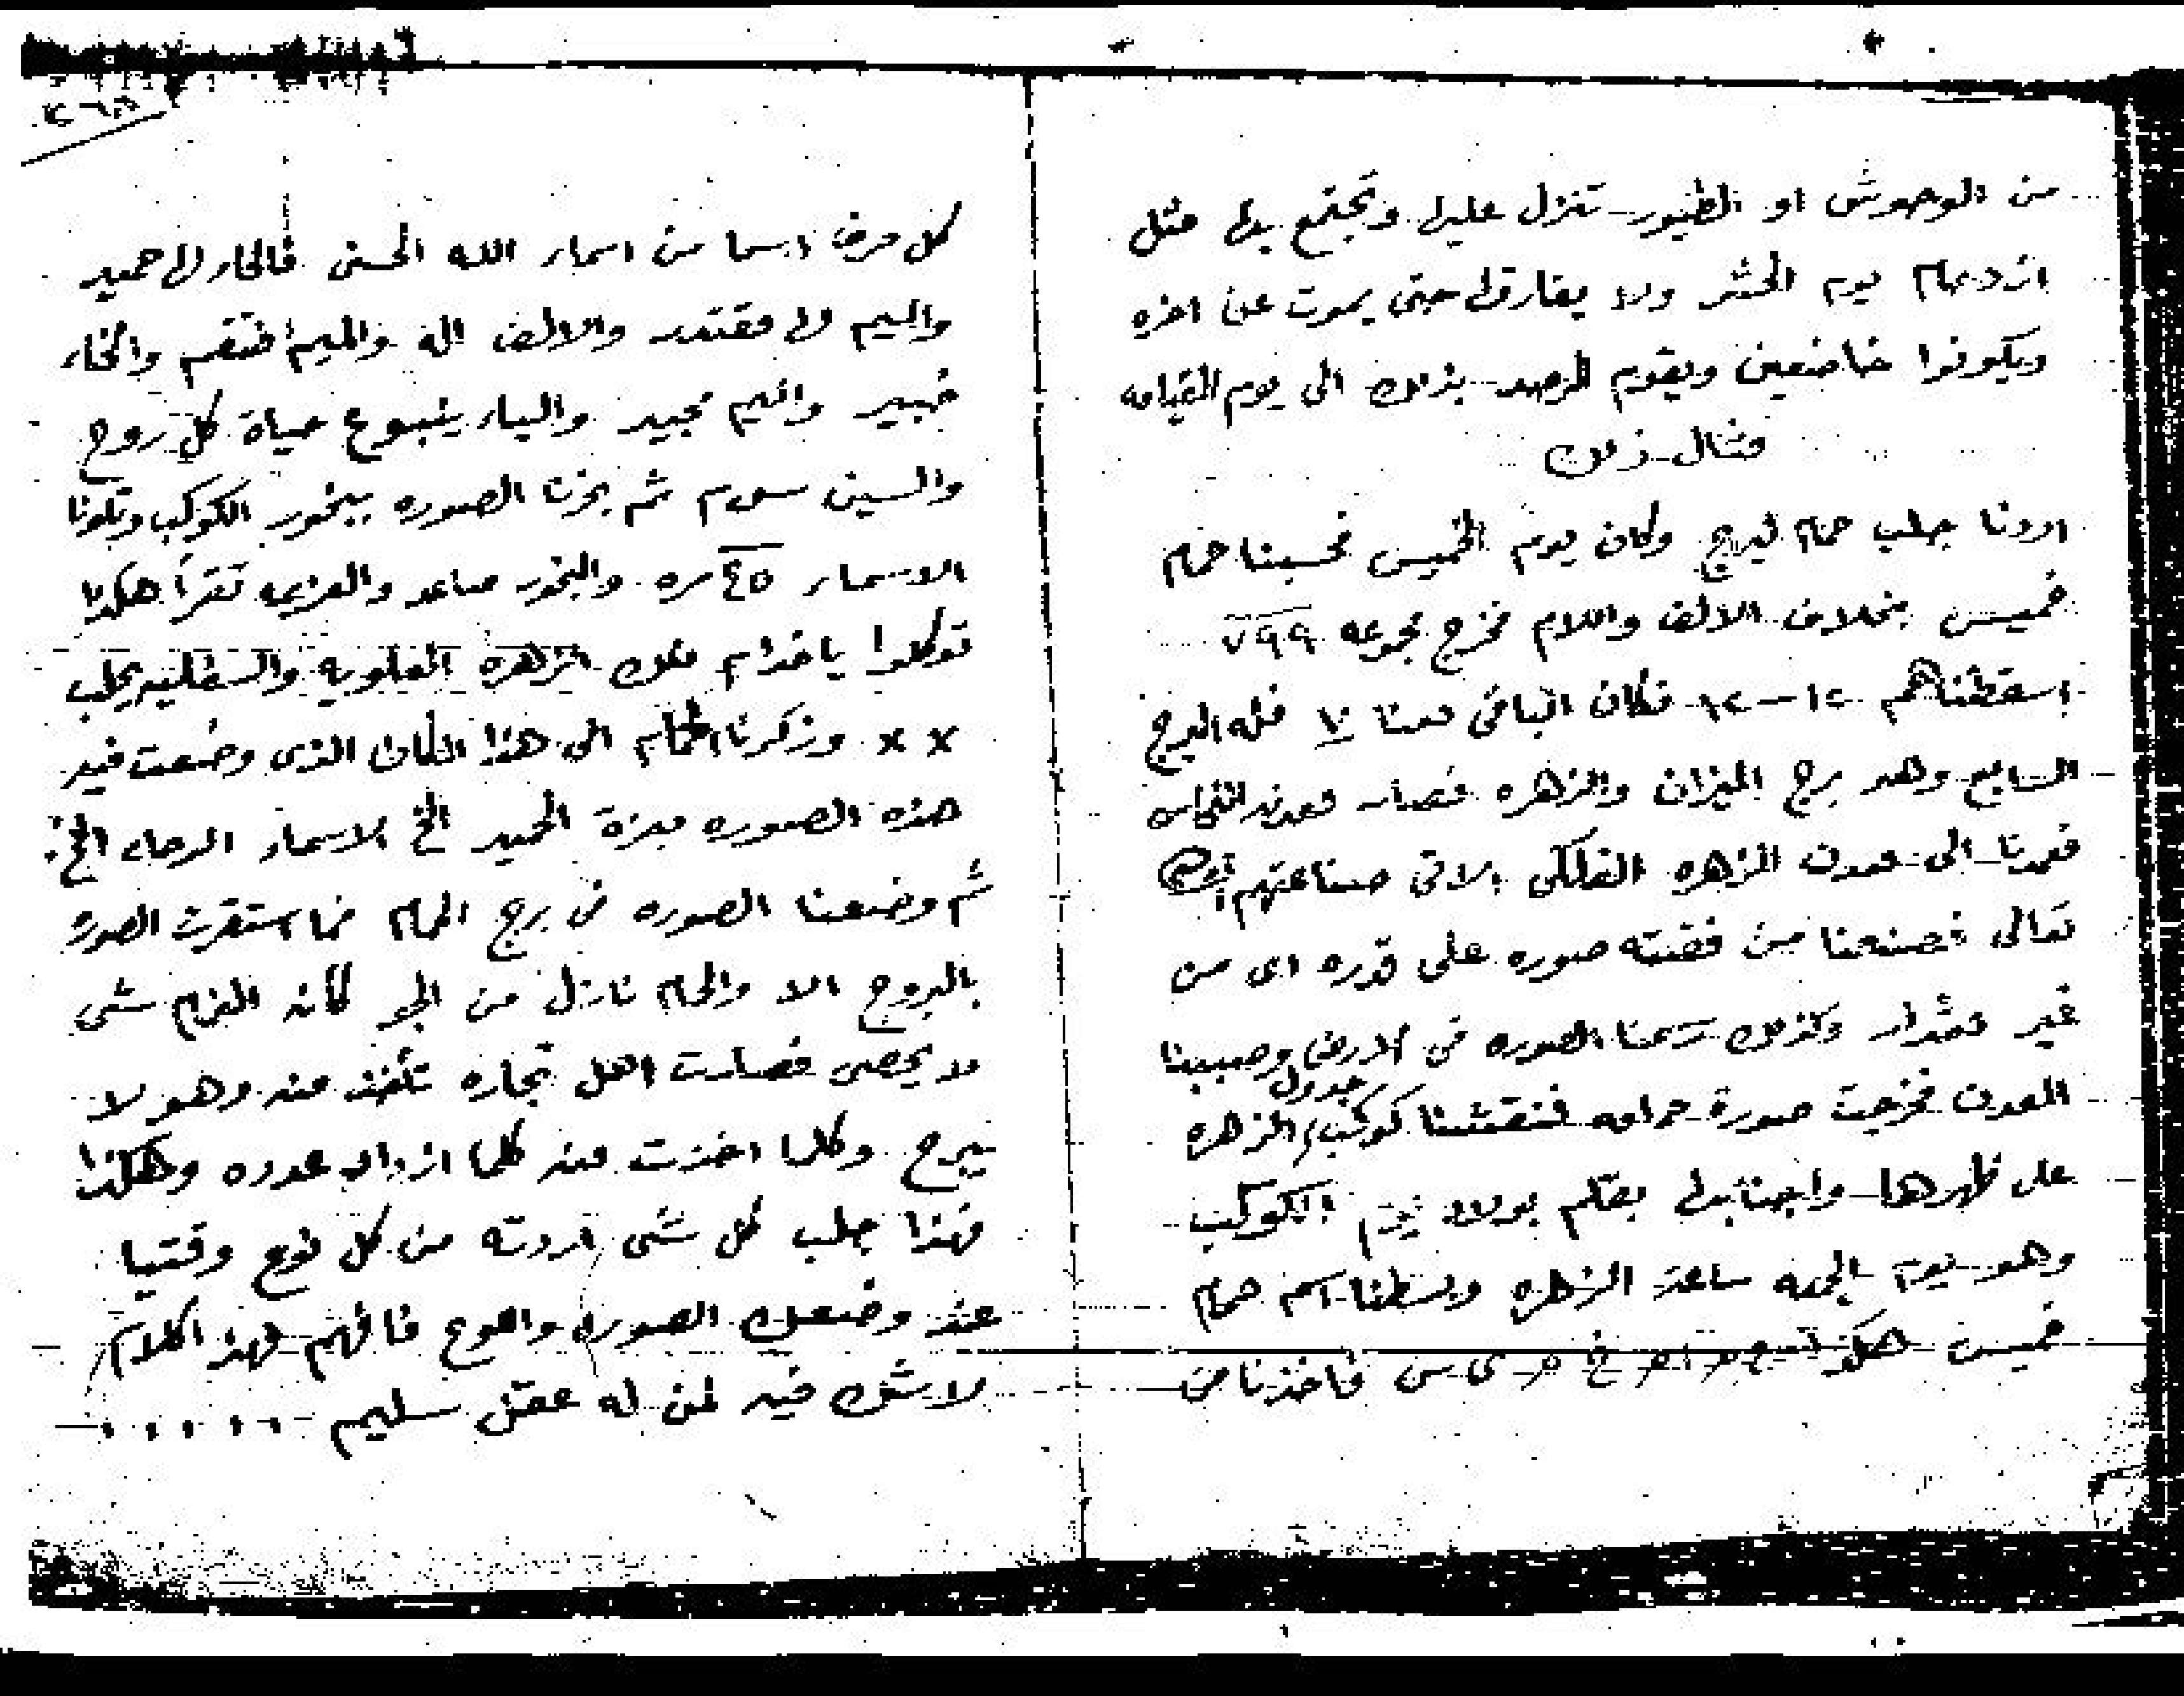 من الوحوش او الطيور تنزل عليها وتجتمع بها مثل
ازدحام يوم الحشر ولا يفارقها حتى يموت عن اخره
ويكونوا خاضعين ويقوم الرصد بذلك الى يوم القيامه
مثال ذلك
اردنا جلب حمام لبرج وكان يوم الخميس فحسبنا حمام
خميس بخلاف الالف واللام فخرج مجموعه ٧٩٩
اسقطناهم ١٢-١٢ فكان الباقى معنا ٧ فله البرج
السابع وهو برج الميزان والزهره فصار معدنه النحاس
فعمدنا الى معدن الزهره الفلكى الاتى صناعتهم
تعالى فصنعنا من فضته صوره على قدره اى من
غير مقدار وكذلك رسمنا الصوره فى الارض وصببنا
المعدن فخرجت صورة حمامه فنقشنا جدول كوكب الزهره
على ظهرها بقلم بولاد يوم الكوكب
وهو يوم الجمعه ساعة الزهره وبسطنا اسم حمام
خميس هكذا ح م ا م خ م ى س فاخذنا من
٢٦٨
كل حرف اسما من اسماء الله الحسنى فالحاء لها حميد
والميم لها مقتدر والالف اله والميم منتقم والخاء
خبير والميم مجيد والياء ينبوع حياة كل روح
والسين سلام ثم بخرنا الصوره ببخور الكوكب وتلونا
الاسماء ٤٥ مره والبخور صاعد والعزيمه تقرأ هكذا
توكلوا يا خدام فلك الزهره العلويه والسفليه بجلب
x x وذكرنا الحمام الى هذا المكان الذى وضعت فيه
هذه الصوره بعزة الحميد الخ الاسماء الوحا الخ
ثم وضعنا الصوره فى برج الحمام فما استقرت الصورة
بالبروج الا والحمام نازل من الجو كأنه الغمام شى
لا يحصى فصارت اهل تجاره تأخذ منه وهو لا
يبرح وكلما اخذت منه كلما ازداد عدده وهكذا
فهذا جلب كل شى اردته من كل نوع وقتيا
عند وضعك الصوره فافهم فهذا الكلام
لا شك فيه لمن له عقل سليم